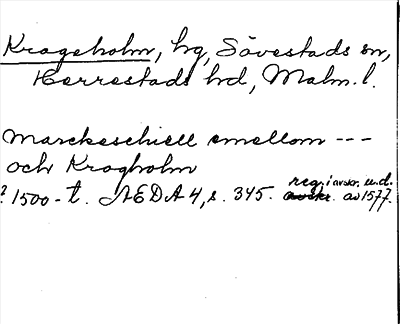 Krageholm, hg, Sövestads sn,
Herrestads hd, Malm. l.
Marckeschiell emellom ---
och Kragholm
? 1500-t. ÄEDA 4, s. 345. reg. i avskr. u.d. av 1577.